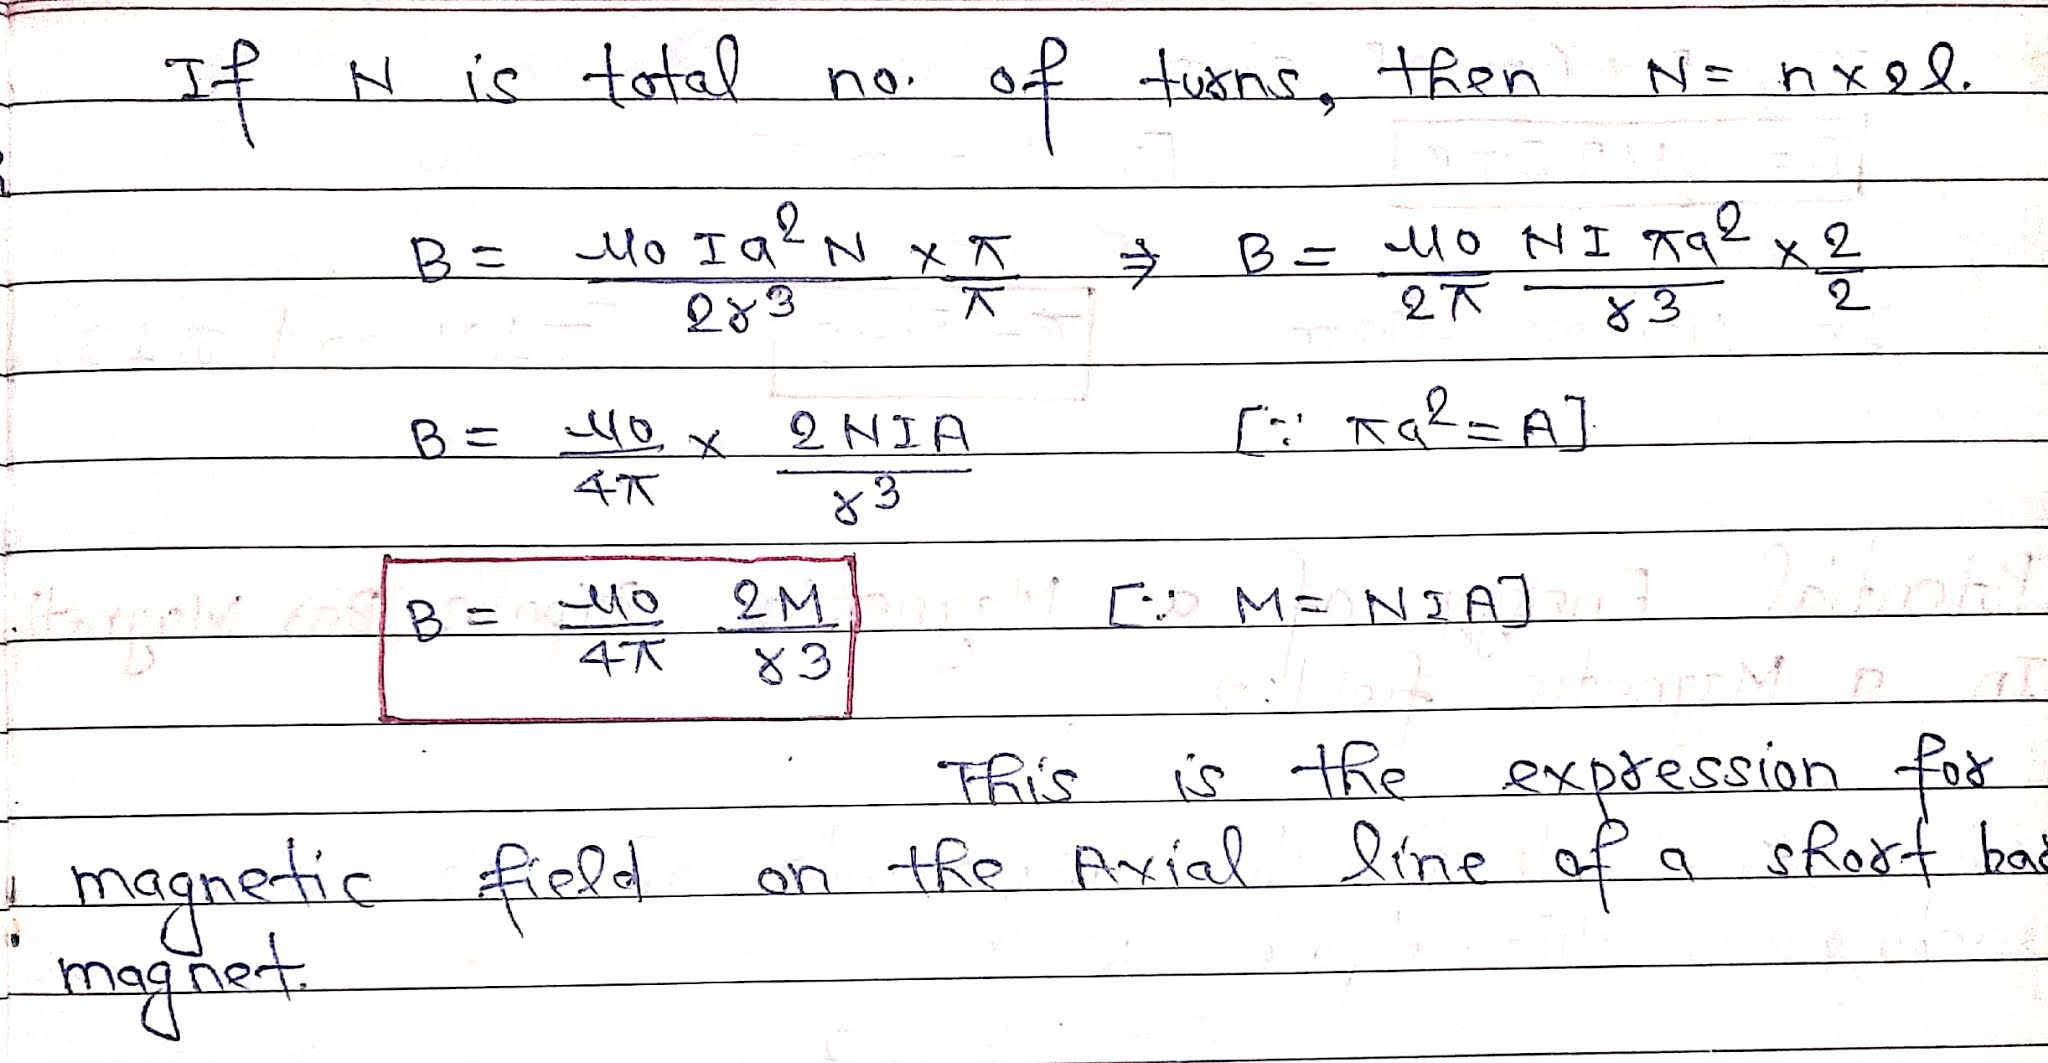 If N is total no. of turns, then N = n×2l.
B = μ0 I a² N / 2r³ × π/π ⇒ B = μ0/2π NI πa²/r³ × 2/2
B = μ0/4π × 2NIA/r³ [∵ πa² = A]
B = μ0/4π 2M/r³ [∵ M = NIA]
This is the expression for
magnetic field on the Axial line of a short bar
magnet.